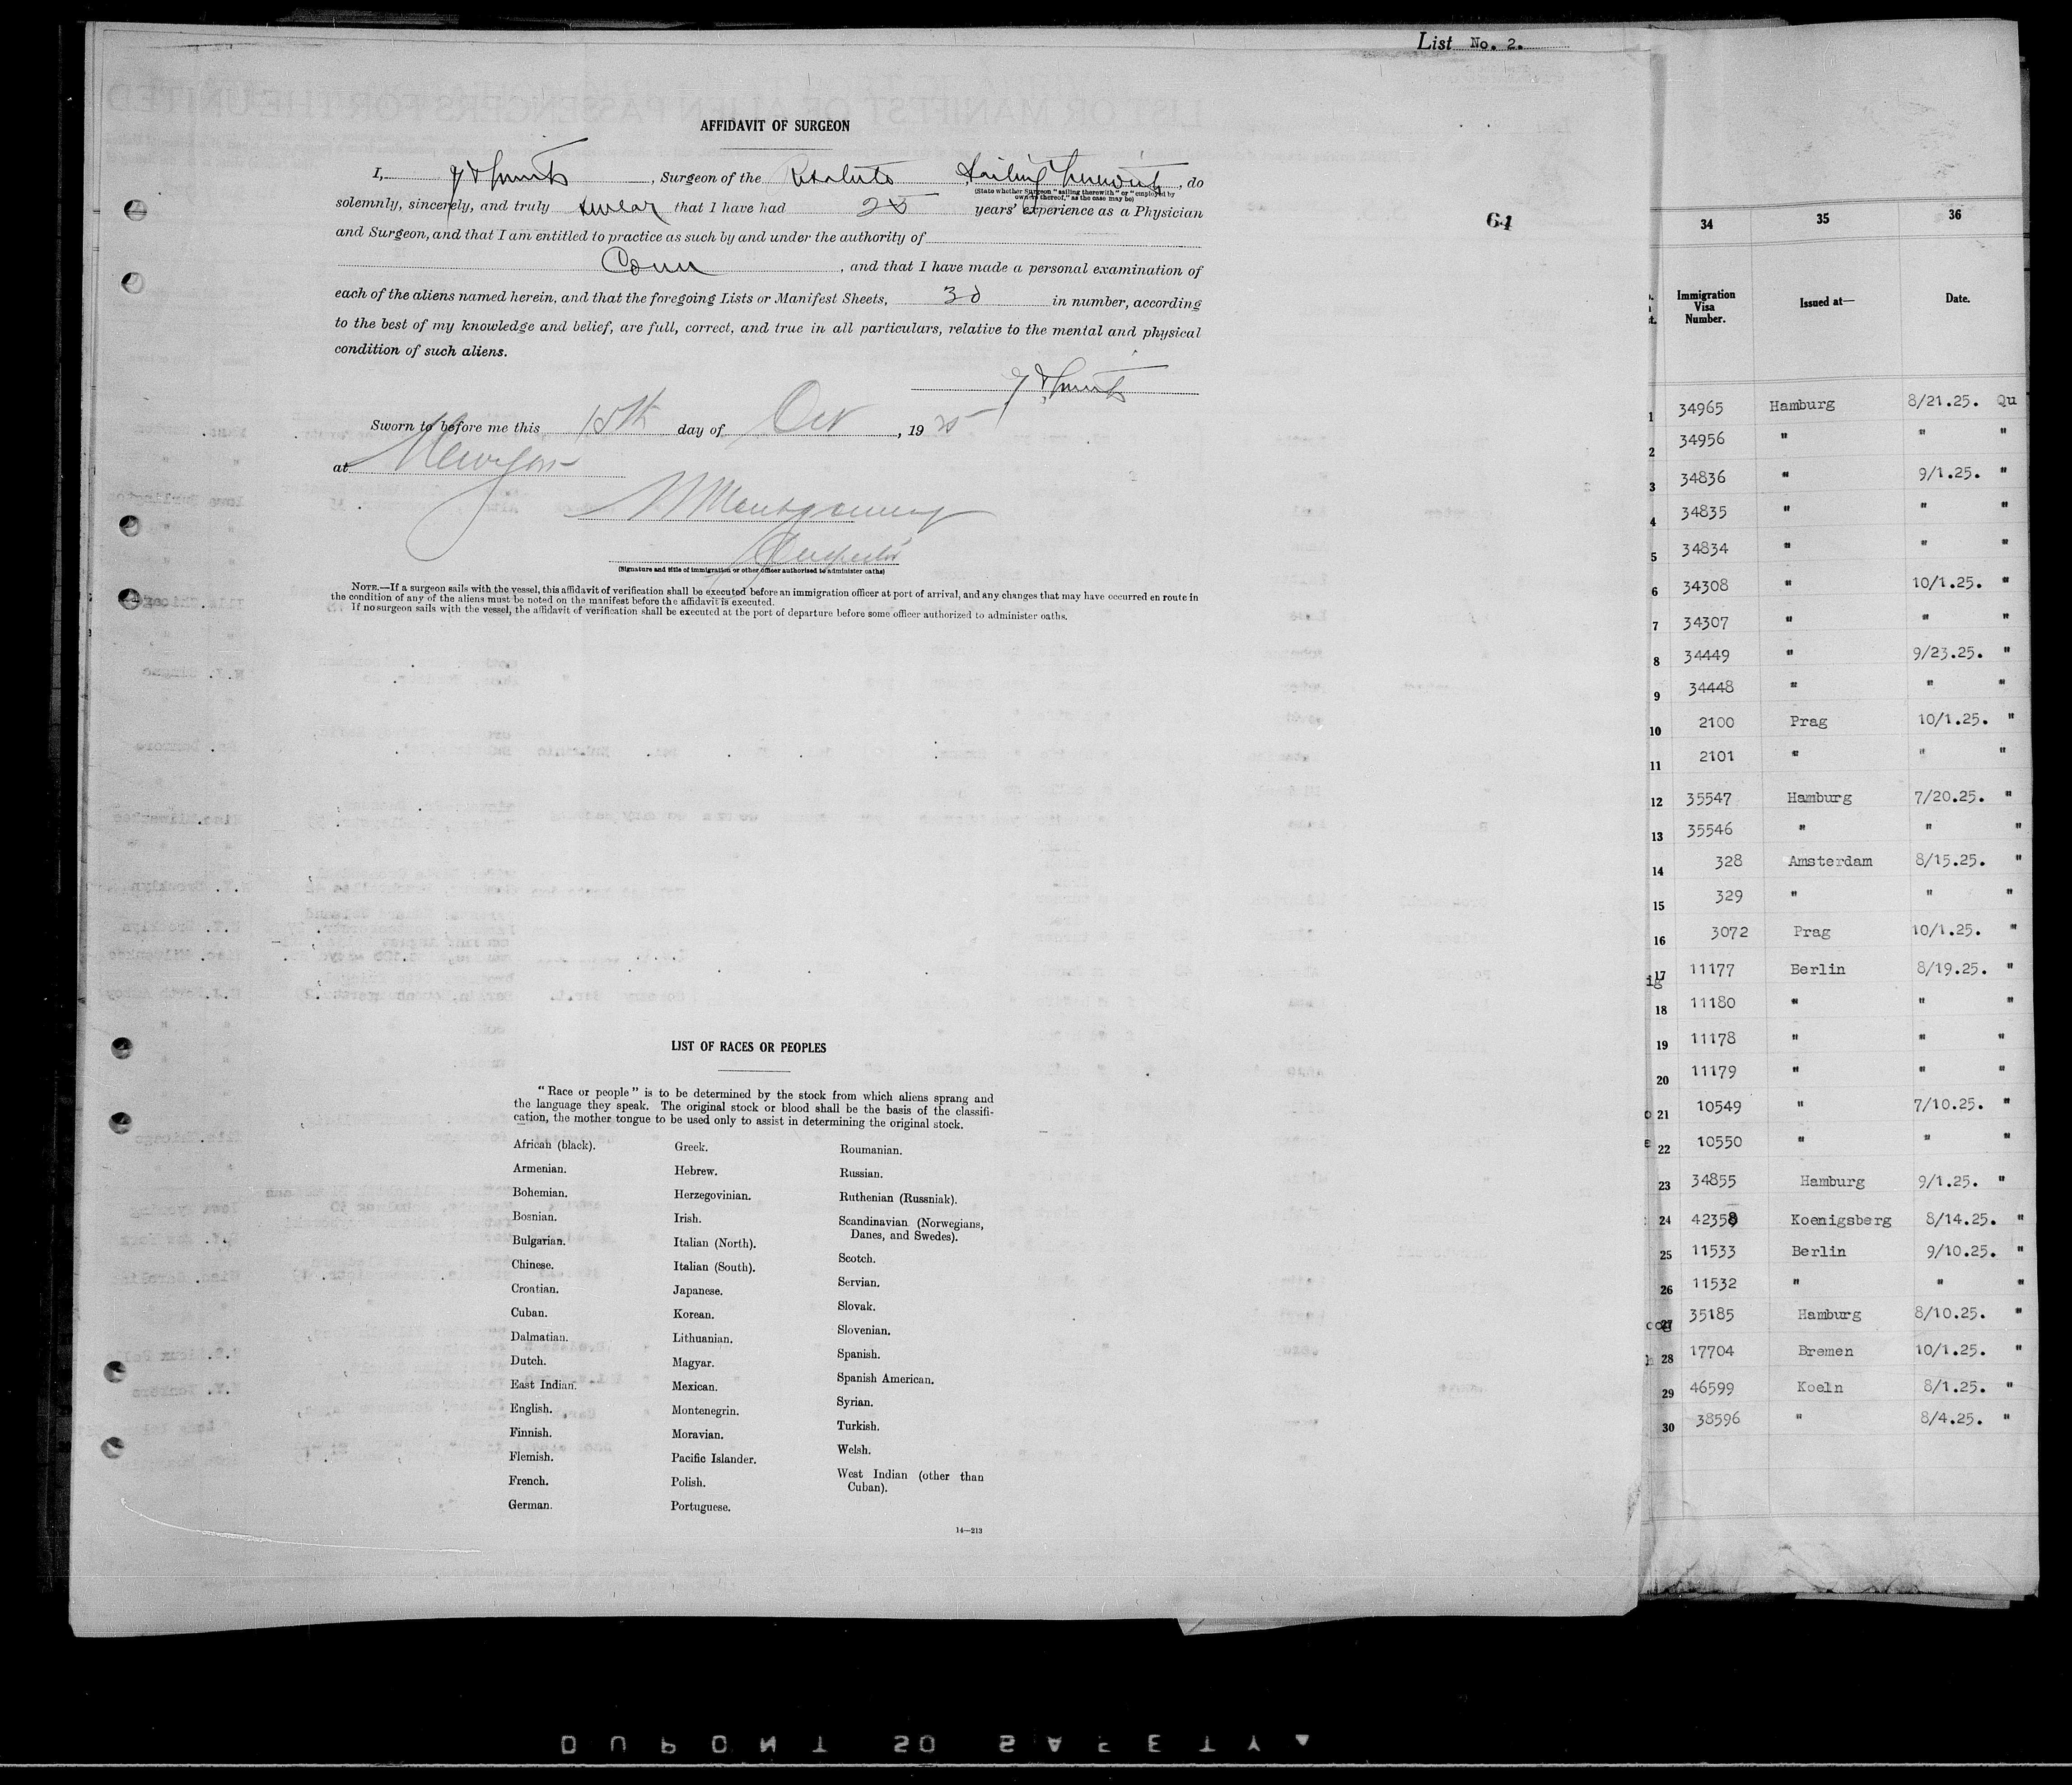 List No. 2.
AFFIDAVIT OF SURGEON
I, , Surgeon of the Resolute Sailing Therewith, do
(State whether Surgeon "sailing therewith" or "employed by
owners thereof," as the case may be)
solemnly, sincerely, and truly swear that I have had 25 years' experience as a Physician
and Surgeon, and that I am entitled to practice as such by and under the authority of
Conn, and that I have made a personal examination of
each of the aliens named herein, and that the foregoing Lists or Manifest Sheets, 30 in number, according
to the best of my knowledge and belief, are full, correct, and true in all particulars, relative to the mental and physical
condition of such aliens.
Sworn to before me this 15th day of Oct, 1925
at New York
Montgomery
Inspector
(Signature and title of immigration or other officer authorized to administer oaths)
NOTE.—If a surgeon sails with the vessel, this affidavit of verification shall be executed before an immigration officer at port of arrival, and any changes that may have occurred en route in
the condition of any of the aliens must be noted on the manifest before the affidavit is executed.
If no surgeon sails with the vessel, the affidavit of verification shall be executed at the port of departure before some officer authorized to administer oaths.
64
LIST OF RACES OR PEOPLES
"Race or people" is to be determined by the stock from which aliens sprang and
the language they speak. The original stock or blood shall be the basis of the classifi-
cation, the mother tongue to be used only to assist in determining the original stock.
African (black).
Armenian.
Bohemian.
Bosnian.
Bulgarian.
Chinese.
Croatian.
Cuban.
Dalmatian.
Dutch.
East Indian.
English.
Finnish.
Flemish.
French.
German.
Greek.
Hebrew.
Herzegovinian.
Irish.
Italian (North).
Italian (South).
Japanese.
Korean.
Lithuanian.
Magyar.
Mexican.
Montenegrin.
Moravian.
Pacific Islander.
Polish.
Portuguese.
Roumanian.
Russian.
Ruthenian (Russniak).
Scandinavian (Norwegians,
Danes, and Swedes).
Scotch.
Servian.
Slovak.
Slovenian.
Spanish.
Spanish American.
Syrian.
Turkish.
Welsh.
West Indian (other than
Cuban).
14—213
34 35 36
Immigration
Visa
Number.
Issued at—
Date.
1 34965 Hamburg 8/21.25. Qu
2 34956 " " "
3 34836 " 9/1.25. "
4 34835 " " "
5 34834 " " "
6 34308 " 10/1.25. "
7 34307 " " "
8 34449 " 9/23.25. "
9 34448 " " "
10 2100 Prag 10/1.25. "
11 2101 " " "
12 35547 Hamburg 7/20.25. "
13 35546 " " "
14 328 Amsterdam 8/15.25. "
15 329 " " "
16 3072 Prag 10/1.25. "
17 11177 Berlin 8/19.25. "
18 11180 " " "
19 11178 " " "
20 11179 " " "
21 10549 " 7/10.25. "
22 10550 " " "
23 34855 Hamburg 9/1.25. "
24 42358 Koenigsberg 8/14.25. "
25 11533 Berlin 9/10.25. "
26 11532 " " "
27 35185 Hamburg 8/10.25. "
28 17704 Bremen 10/1.25. "
29 46599 Koeln 8/1.25. "
30 38596 " 8/4.25. "
DUPONT SO SAFETY